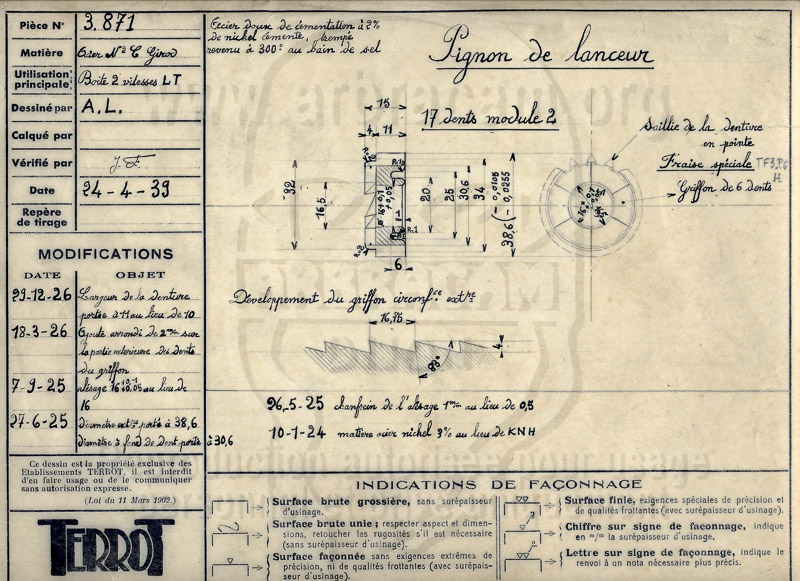 Pièce N° 3.871
Matière Acier N 3 C Girod
Utilisation principale: Boîte 2 vitesses LT
Dessiné par A.L.
Calqué par
Vérifié par
Date 24-4-39
Repère de tirage
MODIFICATIONS
DATE OBJET
29-12-26 Largeur de la denture
portée à 11 au lieu de 10
18-3-26 Ajouté arrondi de 2 m/m sur
la partie exterieure des dents
du griffon
7-9-25 alésage 16 au lieu de
16
27-6-25 diametre ext.re porté à 38,6
diamètre à fond de dent porté à 30,6
Ce dessin est la propriété exclusive des
Etablissements TERROT, il est interdit
d'en faire usage ou de le communiquer
sans autorisation expresse.
(Loi du 11 Mars 1902.)
TERROT
Acier doux de cémentation à 2%
de nickel cementé, trempé
revenu à 300° au bain de sel
Pignon de lanceur
17 dents module 2
15
4 11
32
16,5
20
25
30,6
34
38,6 (-0,0105 -0,0255)
6
Saillie de la denture
en pointe
Fraise spéciale
Griffon de 6 dents
Développement du griffon circonf.ce ext.re
16,75
4
26-5-25 chanfrein de l'alésage 1 m/m au lieu de 0,5
10-1-24 matière acier nickel 3% au lieu de KNH
INDICATIONS DE FAÇONNAGE
Surface brute grossière, sans surépaisseur
d'usinage.
Surface brute unie ; respecter aspect et dimen-
sions, retoucher les rugosités s'il est nécessaire
(sans surépaisseur d'usinage).
Surface façonnée sans exigences extrêmes de
précision, ni de qualités frottantes (avec surépais-
seur d'usinage).
Surface finie, exigences spéciales de précision et
de qualités frottantes (avec surépaisseur d'usinage).
Chiffre sur signe de faconnage, indique
en m/m la surépaisseur d'usinage.
Lettre sur signe de façonnage, indique le
renvoi à un nota nécessaire plus précis.